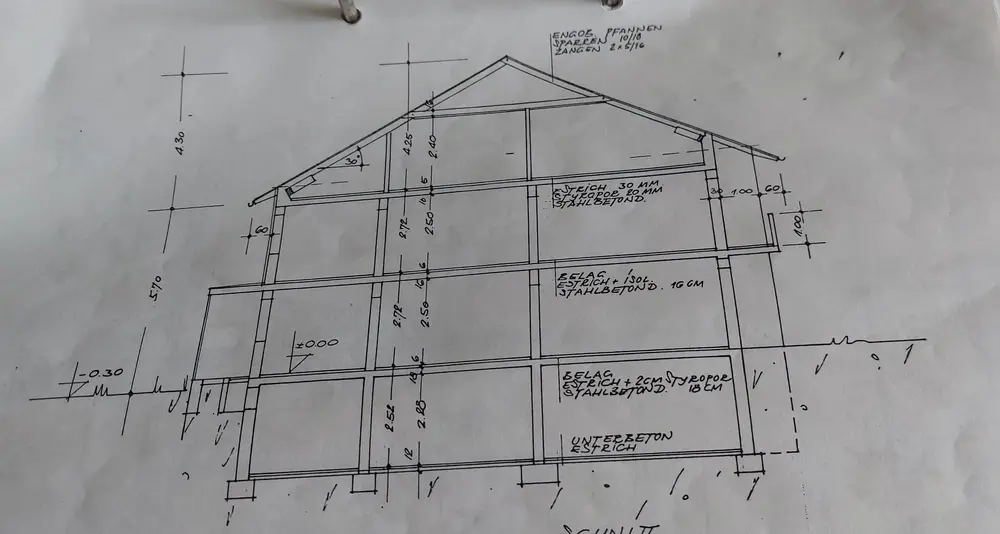 ENGOB. PFANNEN
SPARREN 10/18
ZANGEN 2x6/16
4.30
4.25
2.40
30°
15
5
16
ESTRICH 30 MM
STYROPOR 20 MM
STAHLBETOND.
30
1.00
60
60
1.00
2.72
2.50
5.70
6
16
BELAG
ESTRICH + ISOL.
STAHLBETOND. 16 CM
2.72
2.50
±0.00
-0.30
6
18
BELAG
ESTRICH + 2CM STYROPOR
STAHLBETOND. 18 CM
2.52
2.28
UNTERBETON
ESTRICH
12
SCHNITT